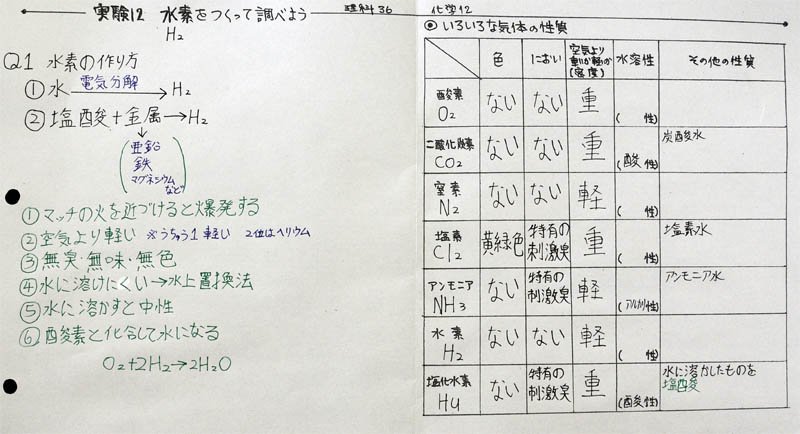 実験12 水素をつくって調べよう
理科36
化学12
H₂
Q1 水素の作り方
① 水 電気分解→H₂
② 塩酸+金属→H₂
↓
(亜鉛
鉄
マグネシウム
など)
① マッチの火を近づけると爆発する
② 空気より軽い ※うちゅう1軽い 2位はヘリウム
③ 無臭・無味・無色
④ 水に溶けにくい→水上置換法
⑤ 水に溶かすと中性
⑥ 酸素と化合して水になる
O₂+2H₂→2H₂O
◎ いろいろな気体の性質
色 におい 空気より重いか軽いか(密度) 水溶性 その他の性質
酸素 O₂ ない ない 重 ( 性)
二酸化炭素 CO₂ ない ない 重 (酸性) 炭酸水
窒素 N₂ ない ない 軽 ( 性)
塩素 Cl₂ 黄緑色 特有の刺激臭 重 ( 性) 塩素水
アンモニア NH₃ ない 特有の刺激臭 軽 (アルカリ性) アンモニア水
水素 H₂ ない ない 軽 ( 性)
塩化水素 HCl ない 特有の刺激臭 重 (酸性) 水に溶かしたものを塩酸